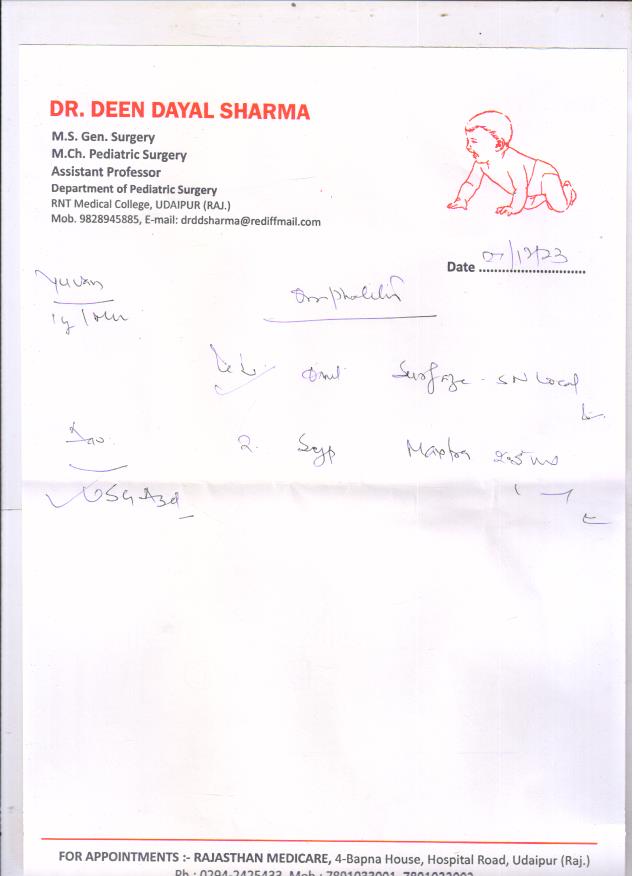 DR. DEEN DAYAL SHARMA
M.S. Gen. Surgery
M.Ch. Pediatric Surgery
Assistant Professor
Department of Pediatric Surgery
RNT Medical College, UDAIPUR (RAJ.)
Mob. 9828945885, E-mail: drddsharma@rediffmail.com
Date
Yuvan
Omphalitis
Oint Surfaze-SN Local
2. Syp
USG Abd
FOR APPOINTMENTS :- RAJASTHAN MEDICARE, 4-Bapna House, Hospital Road, Udaipur (Raj.)